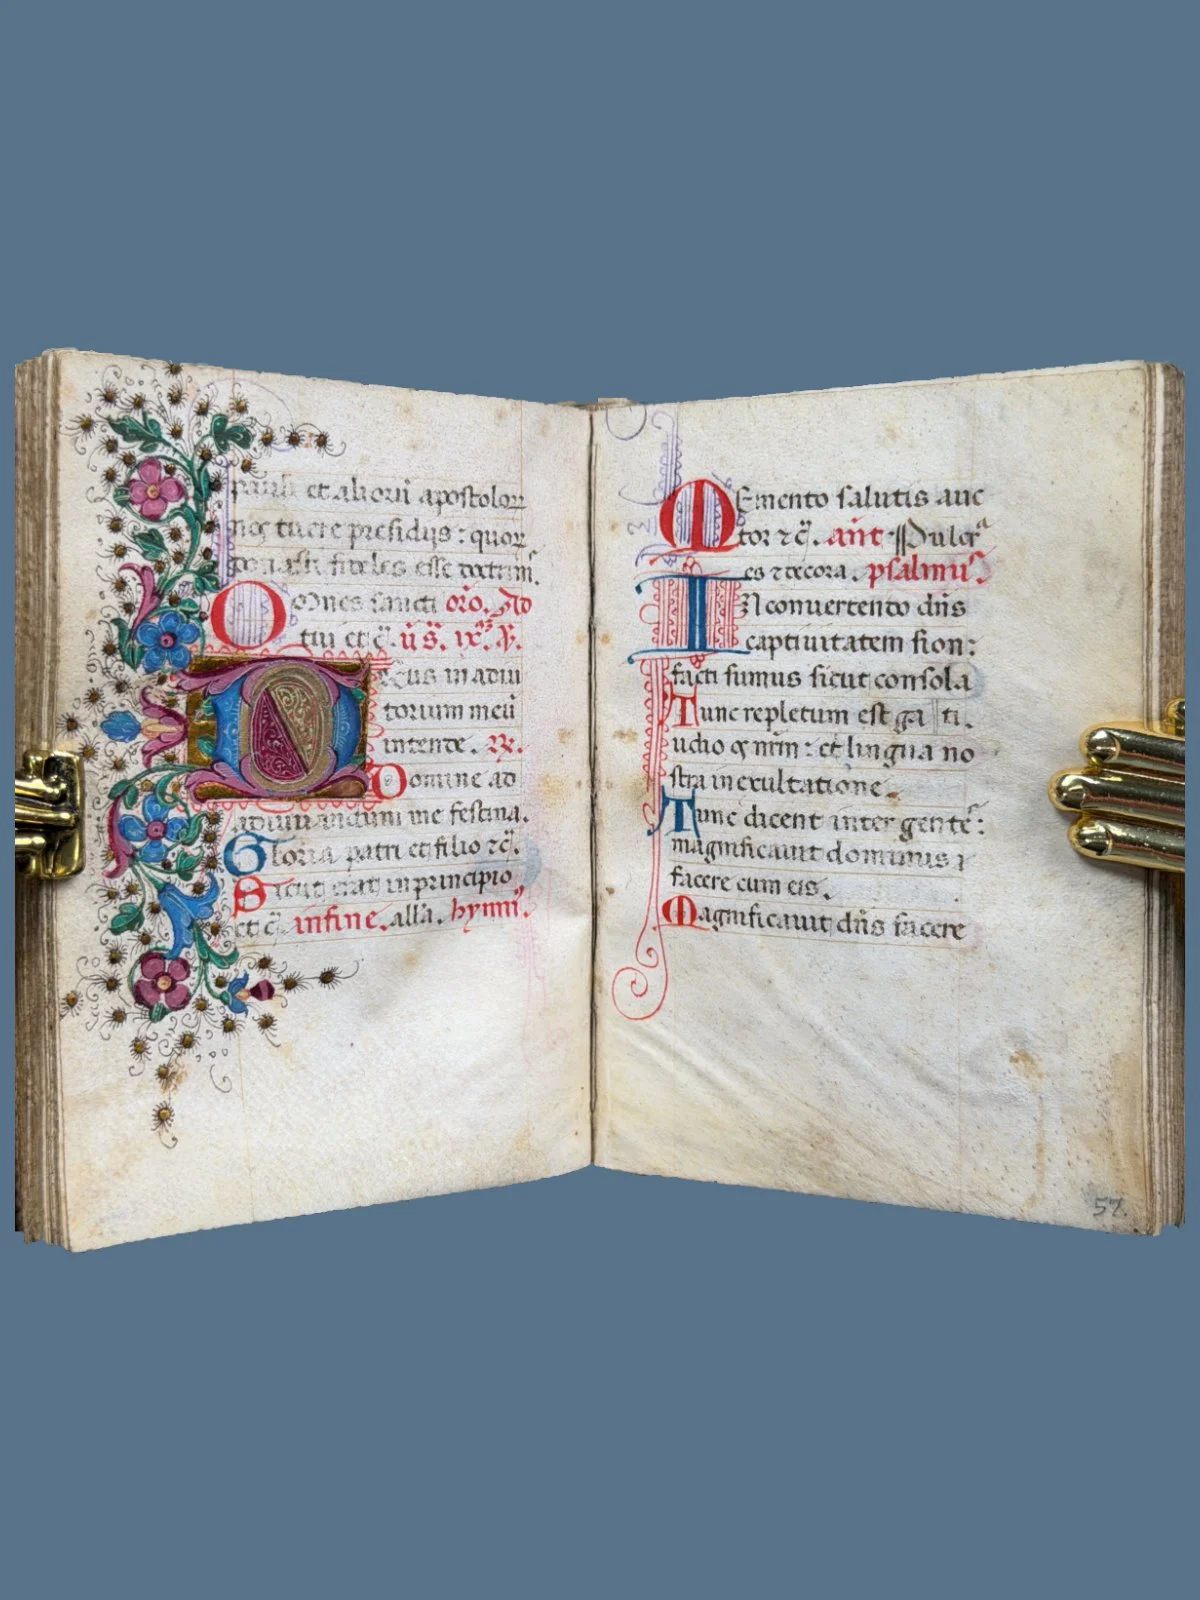 pauli et aliorū apostoloꝝ
nos tuere presidijs : quoꝝ
donasti fideles esse doctrinis.
OMnes sancti orō. Ad
tui et c̄. ꝟs. ℟.
Deus in adiu
torium meū
intende. ℞.
Domine ad
adiuuandum me festina.
Gloria patri et filio ⁊c̄.
Sicut erat in principio
et c̄. infine. alla. hymnꝰ.
MEmento salutis auc
tor ⁊c̄. ant̄. Pulcra
es ⁊ decora. psalmus.
IN conuertendo dn̄s
captiuitatem sion :
facti sumus sicut consola
Tunc repletum est ga ti.
udio os nrm̄ : et lingua no
stra in exultatione.
Tunc dicent inter gentes :
magnificauit dominus
facere cum eis.
Magnificauit dn̄s facere
57.